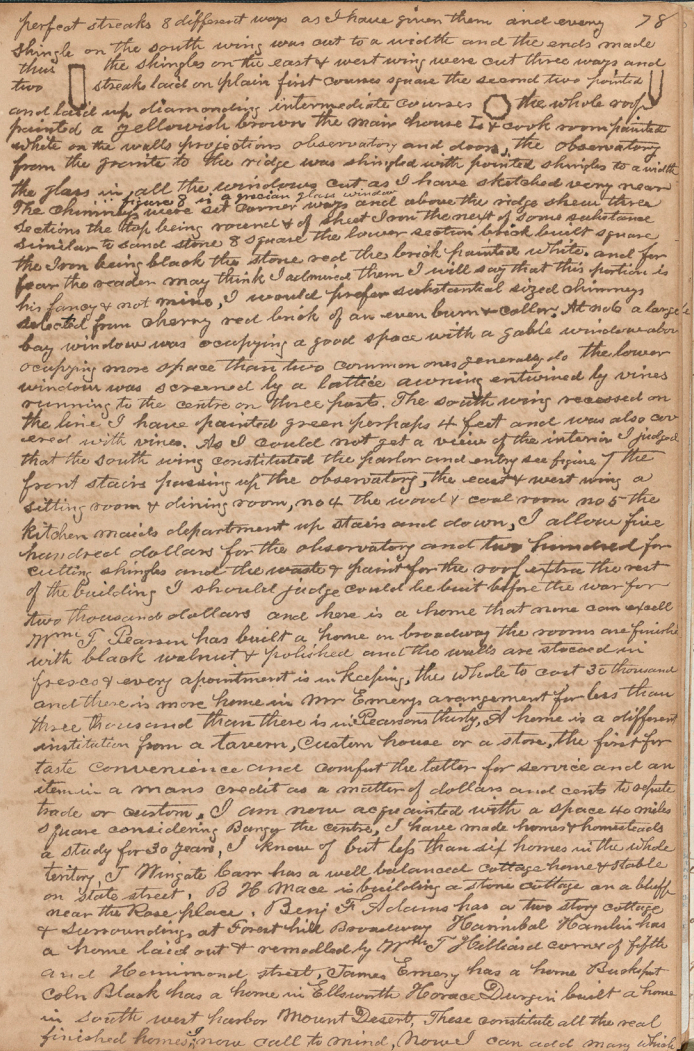 perfect streaks 8 different ways as I have given them and every 78
shingle on the south wing was cut to a width and the ends made
thus the shingles on the east & west wing were cut three ways and
two streaks laid on plain first courses square the second two pointed
and laid up diamonding intermediate courses the whole roof
painted a yellowish brown the main house L & cook room painted
white on the walls projections observatory and doors, the observatory
from the granite to the ridge was shingled with pointed shingles to a width
the glass in all the windows cut as I have sketched very near
figure 8 is a grecian glass window
The chimneys were set corner ways and above the ridge shew three
sections the top being round & of sheet Iron the next of some substance
similar to sand stone 8 square the lower section brick built square
the Iron being black the stone red the brick painted white. and for
fear the reader may think I admired them I will say that this portion is
his fancy & not mine, I would prefer substantial sized chimneys
selected from cherry red brick of an even burn & collor. At no 6 a large
bay window was occupying a good space with a gable window above
occupying more space than two common ones generally do the lower
window was screened by a lattice awning entwined by vines
running to the centre on three posts. The south wing recessed on
the line I have painted green perhaps 4 feet and was also cov
ered with vines. As I could not get a view of the interior I judged
that the south wing constituted the parlor and entry see figure 7 the
front stairs passing up the observatory, the east & west wing a
sitting room & dining room, no 4 the wood & coal room no 5 the
kitchen maids department up stairs and down, I allow five
hundred dollars for the observatory and two hundred for
cutting shingles and the waste & paint for the roof extra the rest
of the building I should judge could be built before the war for
two thousand dollars and here is a home that none can excell
Wm T Pearson has built a home on broadway the rooms are finishe
with black walnut & polished and the walls are stocaed in
fresco & every apointment is in keeping, the whole to cost 30 thousand
and there is more home in Mr Emerys arangement for less than
three thousand than there is in Pearsons thirty, A home is a different
institution from a tavern, Custom house or a store, the first for
taste convenience and comfort the latter for service and an
item in a mans credit as a matter of dollars and cents to
trade or custom. I am now acquainted with a space 40 miles
square considering Bangor the centre, I have made homes & homesteads
a study for 30 years, I know of but less than six homes in the whole
teritory, J Wingate Carr has a well balanced cottage home & stable
on state street. B H Mace is building a stone cottage on a bluff
near the Rose place. Benj F Adams has a two story cottage
& surroundings at Forest hill Broadway Hannibal Hamlin has
a home laid out & remodled by Wm T Hilliard corner of fifth
and Hammond street, James Emery has a home Bucksport
Coln Black has a home in Ellsworth Horace Durgin built a home
in South west harbor Mount Desert, These constitute all the real
finished homes I now call to mind, Now I can add many which